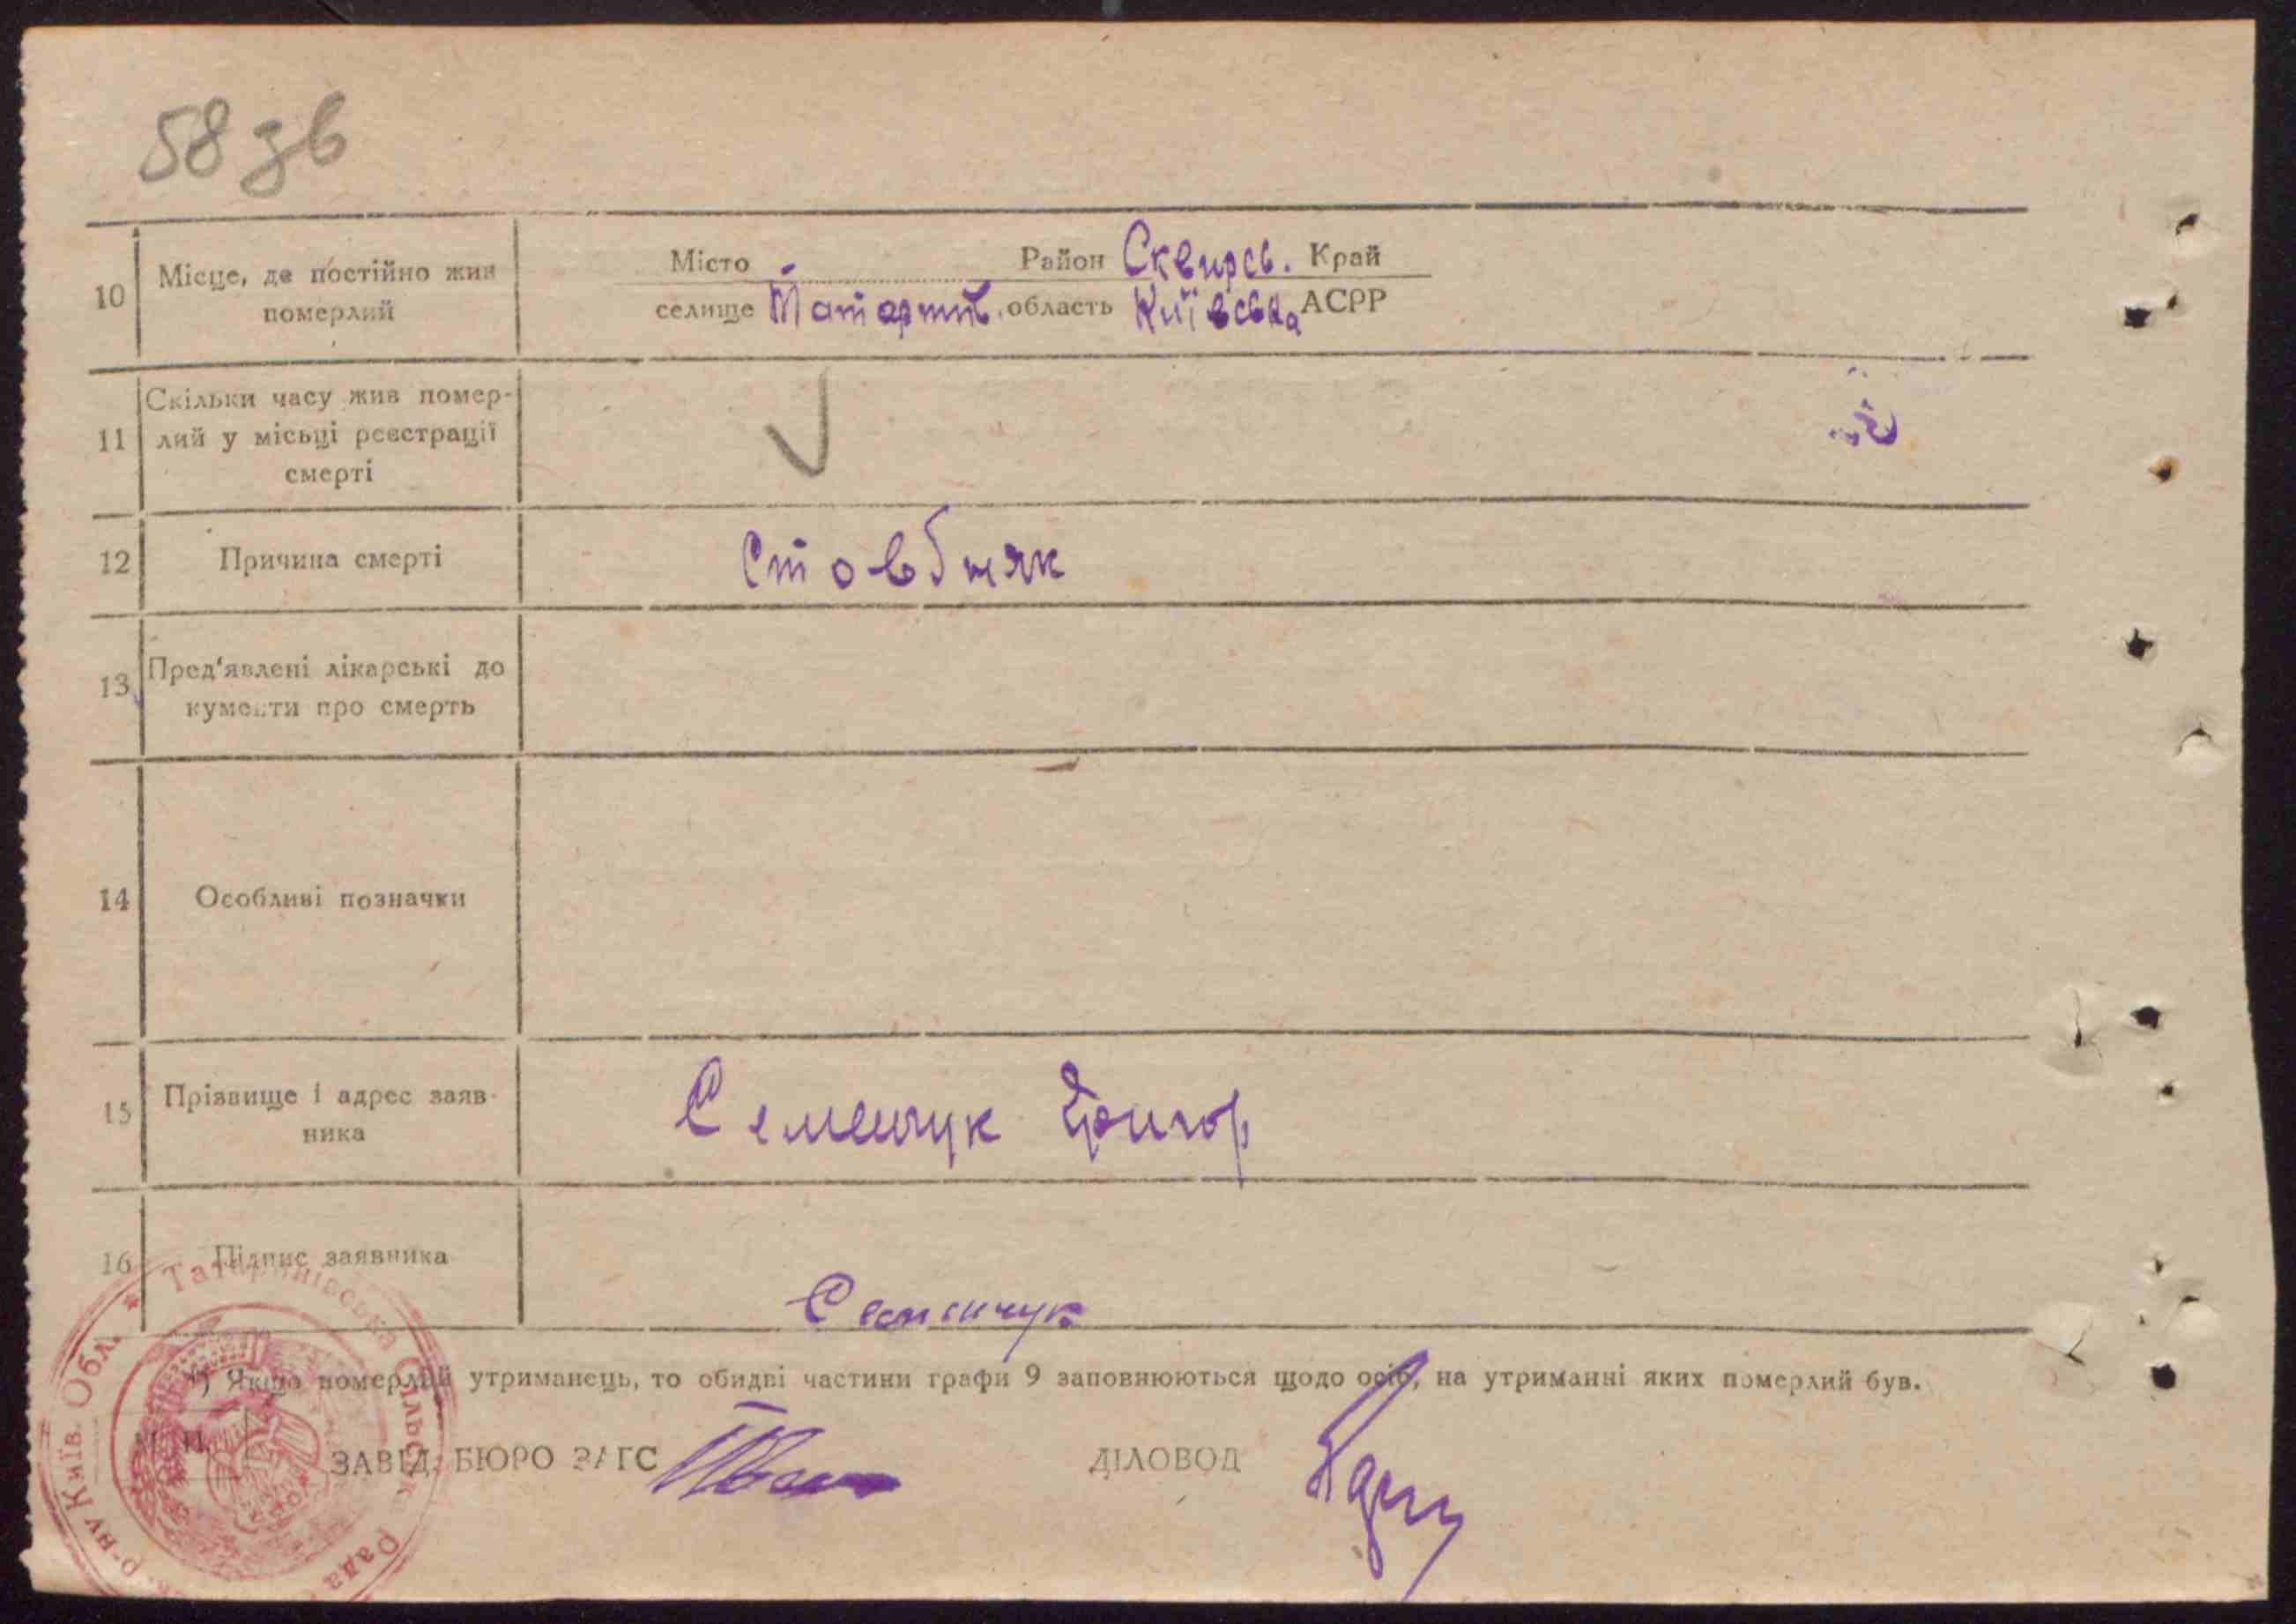 58 зв
10 Місце, де постійно жив померлий
Місто Район Сквирсь. Край
селище область Київська АСРР
11 Скільки часу жив помер-
лий у місьці реєстрації
смерті
12 Причина смерті Стовбняк
13 Пред'явлені лікарські до
кументи про смерть
14 Особливі позначки
15 Прізвище і адрес заяв-
ника
Семенчук Григор
16 Підпис заявника
Семенчук
*) Якщо померлий утриманець, то обидві частини графи 9 заповнюються щодо осіб, на утриманні яких померлий був.
М. П.
ЗАВІД. БЮРО ЗАГС ДІЛОВОД
Сільськ. Рада р-ну Київ. Обл.